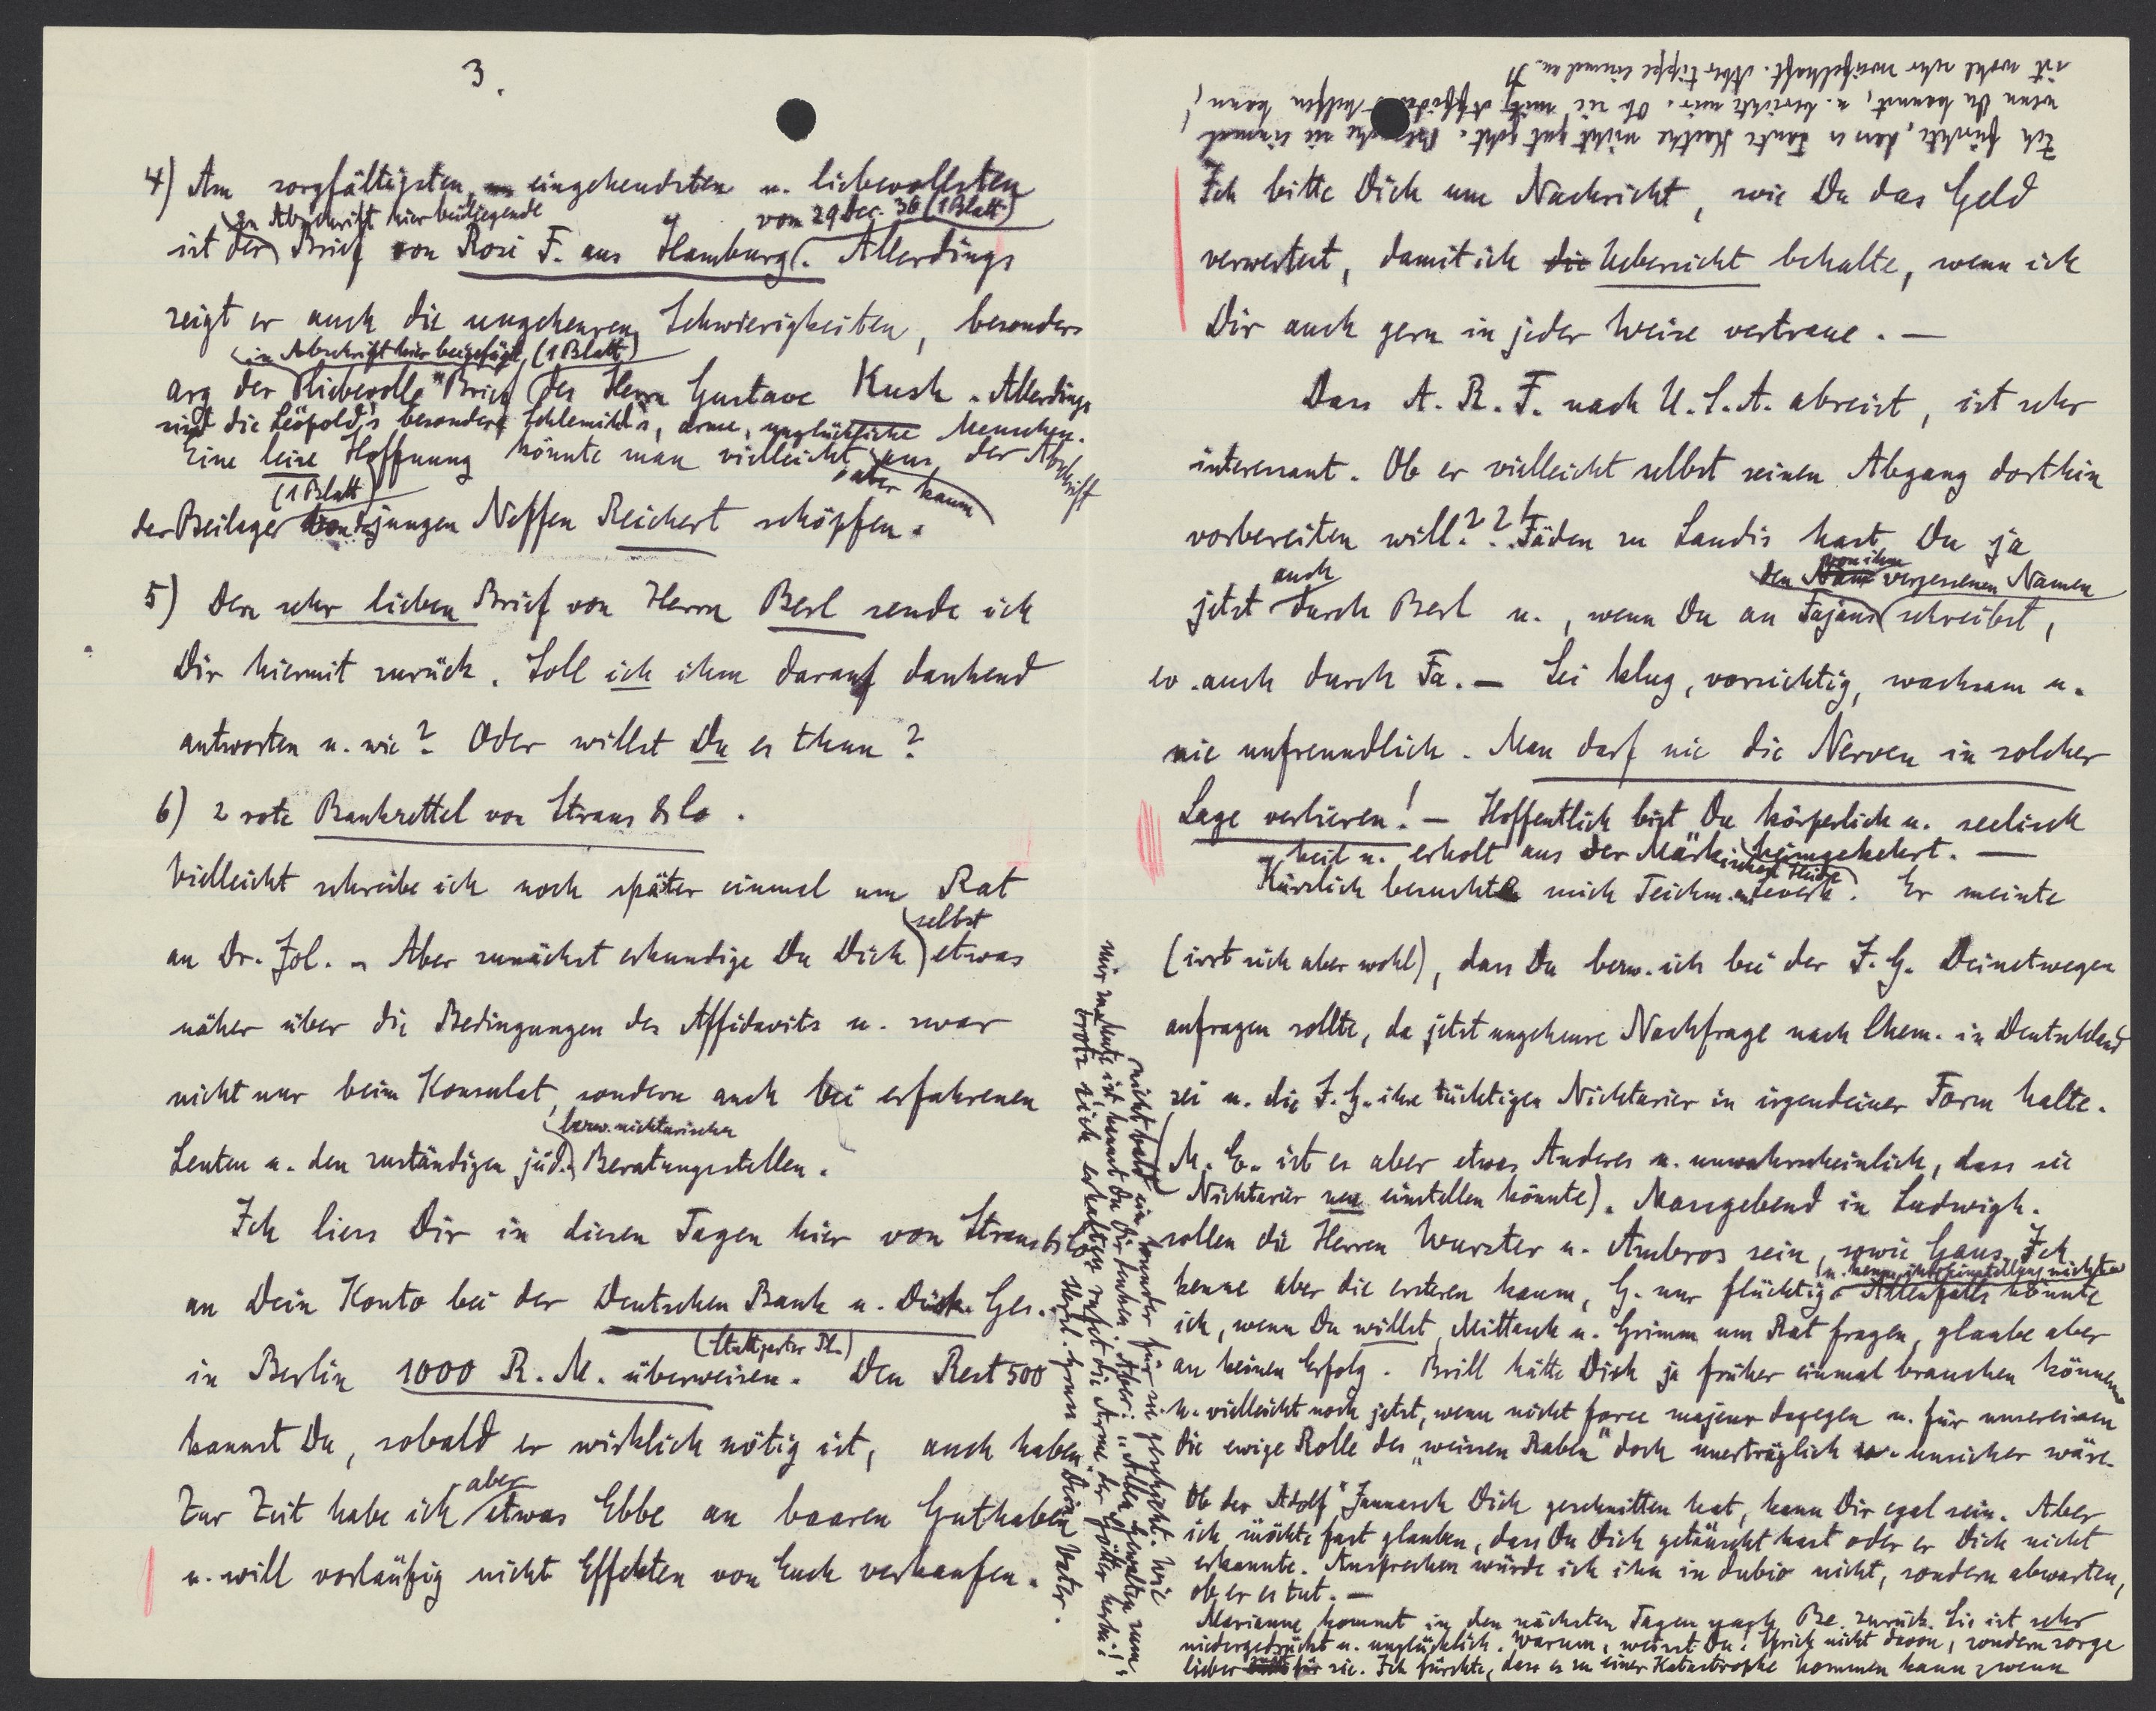 3.
4) Am sorgfältigsten, eingehendsten u. liebevollsten
(in Abschrift hier beiliegende
vom 29 Dec. 36 (1 Blatt)
ist der Brief von Rosi F. aus Hamburg. Allerdings
zeigt er auch die ungeheuren Schwierigkeiten, besonders
(in Abschrift hier beigefügt, (1 Blatt)
arg der "liebevolle" Brief des Herrn Gustave Kush. Allerdings
sind die Leopold's besonders Schlemihl's, arme, unglückliche Menschen.
Eine leise Hoffnung könnte man vielleicht aus der Abschrift
(1 Blatt)
aber kaum
der Beilage des jungen Neffen Reichert schöpfen.
5) Den sehr lieben Brief von Herrn Berl sende ich
Dir hiermit zurück. Soll ich ihm darauf dankend
antworten u. wie? Oder willst Du es thun?
6) 2 rote Bankzettel von Straus & Co.
Vielleicht schreibe ich noch später einmal um Rat
selbst
an Dr. Jol. – Aber zunächst erkundige Du Dich etwas
näher über die Bedingungen des Affidavits u. zwar
nicht nur beim Konsulat, sondern auch bei erfahrenen
(bezw. nichtarischen
Leuten u. den zuständigen jüd. Beratungsstellen.
Ich liess Dir in diesen Tagen hier von Straus & Co
an Dein Konto bei der Deutschen Bank u. Disk. Ges.
(Stuttgarter Pl.)
in Berlin 1000 R.M. überweisen. Den Rest 500
kannst Du, sobald er wirklich nötig ist, auch haben.
aber
Zur Zeit habe ich etwas Ebbe an baaren Guthaben
u. will vorläufig nicht Effekten von Euch verkaufen.
Ich bitte Dich um Nachricht, wie Du das Geld
verwertest, damit ich die Uebersicht behalte, wenn ich
Dir auch gern in jeder Weise vertraue. —
Dass A. R. F. nach U.S.A. abreist, ist sehr
interessant. Ob er vielleicht selbst seinen Abgang dorthin
vorbereiten will??! Fäden zu Landis hast Du ja
von ihm
auch
den vergessenen Namen
jetzt durch Berl u., wenn Du an Fajans schreibst,
ev. auch durch Fa. — Sei klug, vorsichtig, wachsam u.
nie unfreundlich. Man darf nie die Nerven in solcher
Lage verlieren! — Hoffentlich bist Du körperlich u. seelisch
heil u. erholt aus der Märkischen Heide heimgekehrt. —
Kürzlich besuchte mich Teichm. Er meinte
(irrt sich aber wohl), dass Du bezw. ich bei der I.G. Deinetwegen
anfragen sollte, da jetzt ungeheure Nachfrage nach Chem. in Deutschland
sei u. die I.G. ihre tüchtigen Nichtarier in irgendeiner Form halte.
(M. E. ist es aber etwas Anderes u. unwahrscheinlich, dass sie
Nichtarier neu einstellen könnte). Massgebend in Ludwigh.
sollen die Herren Wurster u. Ambros sein, sowie Gaus. Ich
(u. kenne ihre Einstellung nicht)
kenne aber die ersteren kaum, G. nur flüchtig. Allenfalls könnte
ich, wenn Du willst, Mittasch u. Grimm um Rat fragen, glaube aber
an keinen Erfolg. Brill hätte Dich ja früher einmal brauchen können
u. vielleicht noch jetzt, wenn nicht force majeur dagegen u. für unsereinen
die ewige Rolle des "weissen Raben" doch unerträglich u. unsicher wäre.
Ob der "Adolf" Jannasch Dich geschnitten hat, kann Dir egal sein. Aber
ich möchte fast glauben, dass Du Dich getäuscht hast oder er Dich nicht
erkannte. Ansprechen würde ich ihn in dubio nicht, sondern abwarten,
ob er es tut. —
Marianne kommt in den nächsten Tagen nach Be. zurück. Sie ist sehr
niedergedrückt u. unglücklich. Warum, weisst Du. Sprich nicht davon, sondern sorge
lieber für sie. Ich fürchte, dass es zu einer Katastrophe kommen kann, wenn
nicht bald ein Wunder für sie geschieht. Wie
mir zu Mute ist, kannst Du Dir denken. Aber: "Allen Gewalten zum
Trotz sich erhalten rufet die Arme der Götter herbei!"
Herzl. Gruss Dein Vater.
Ich fürchte, dass es Tante Käthe nicht gut geht. Besuche sie einmal,
wenn Du kannst, u. berichte mir. Ob sie mit Affidavit helfen kann,
ist wohl sehr zweifelhaft. Aber tippe einmal an.